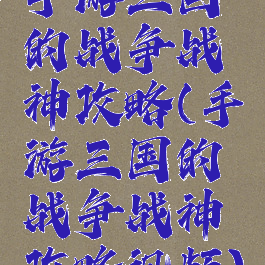 手游三国
的战争战
神攻略(手
游三国的
战争战神
攻略视频)